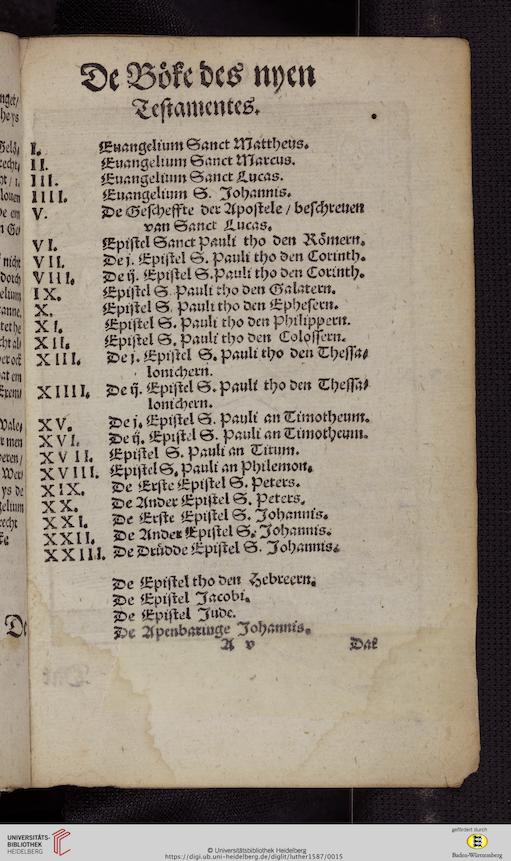 De Böke des nyen
Testamentes.
I. Euangelium Sanct Mattheus.
II. Euangelium Sanct Marcus.
III. Euangelium Sanct Lucas.
IIII. Euangelium S. Johannis.
V. De Gescheffte der Apostele / beschreuen
van Sanct Lucas.
VI. Epistel Sanct Pauli tho den Römern.
VII. De j. Epistel S. Pauli tho den Corinth.
VIII. De ij. Epistel S. Pauli tho den Corinth.
IX. Epistel S. Pauli tho den Galatern.
X. Epistel S. Pauli tho den Ephesern.
XI. Epistel S. Pauli tho den Philippern.
XII. Epistel S. Pauli tho den Colossern.
XIII. De j. Epistel S. Pauli tho den Thessa/
lonichern.
XIIII. De ij. Epistel S. Pauli tho den Thessa/
lonichern.
XV. De j. Epistel S. Pauli an Timotheum.
XVI. De ij. Epistel S. Pauli an Timotheum.
XVII. Epistel S. Pauli an Titum.
XVIII. Epistel S. Pauli an Philemon.
XIX. De Erste Epistel S. Peters.
XX. De Ander Epistel S. Peters.
XXI. De Erste Epistel S. Johannis.
XXII. De Ander Epistel S. Johannis.
XXIII. De Drüdde Epistel S. Johannis.
De Epistel tho den Hebreern.
De Epistel Jacobi.
De Epistel Jude.
De Apenbaringe Johannis.
A v Dat
UNIVERSITÄTS-
BIBLIOTHEK
HEIDELBERG
© Universitätsbibliothek Heidelberg
https://digi.ub.uni-heidelberg.de/diglit/luther1587/0015
gefördert durch
Baden-Württemberg